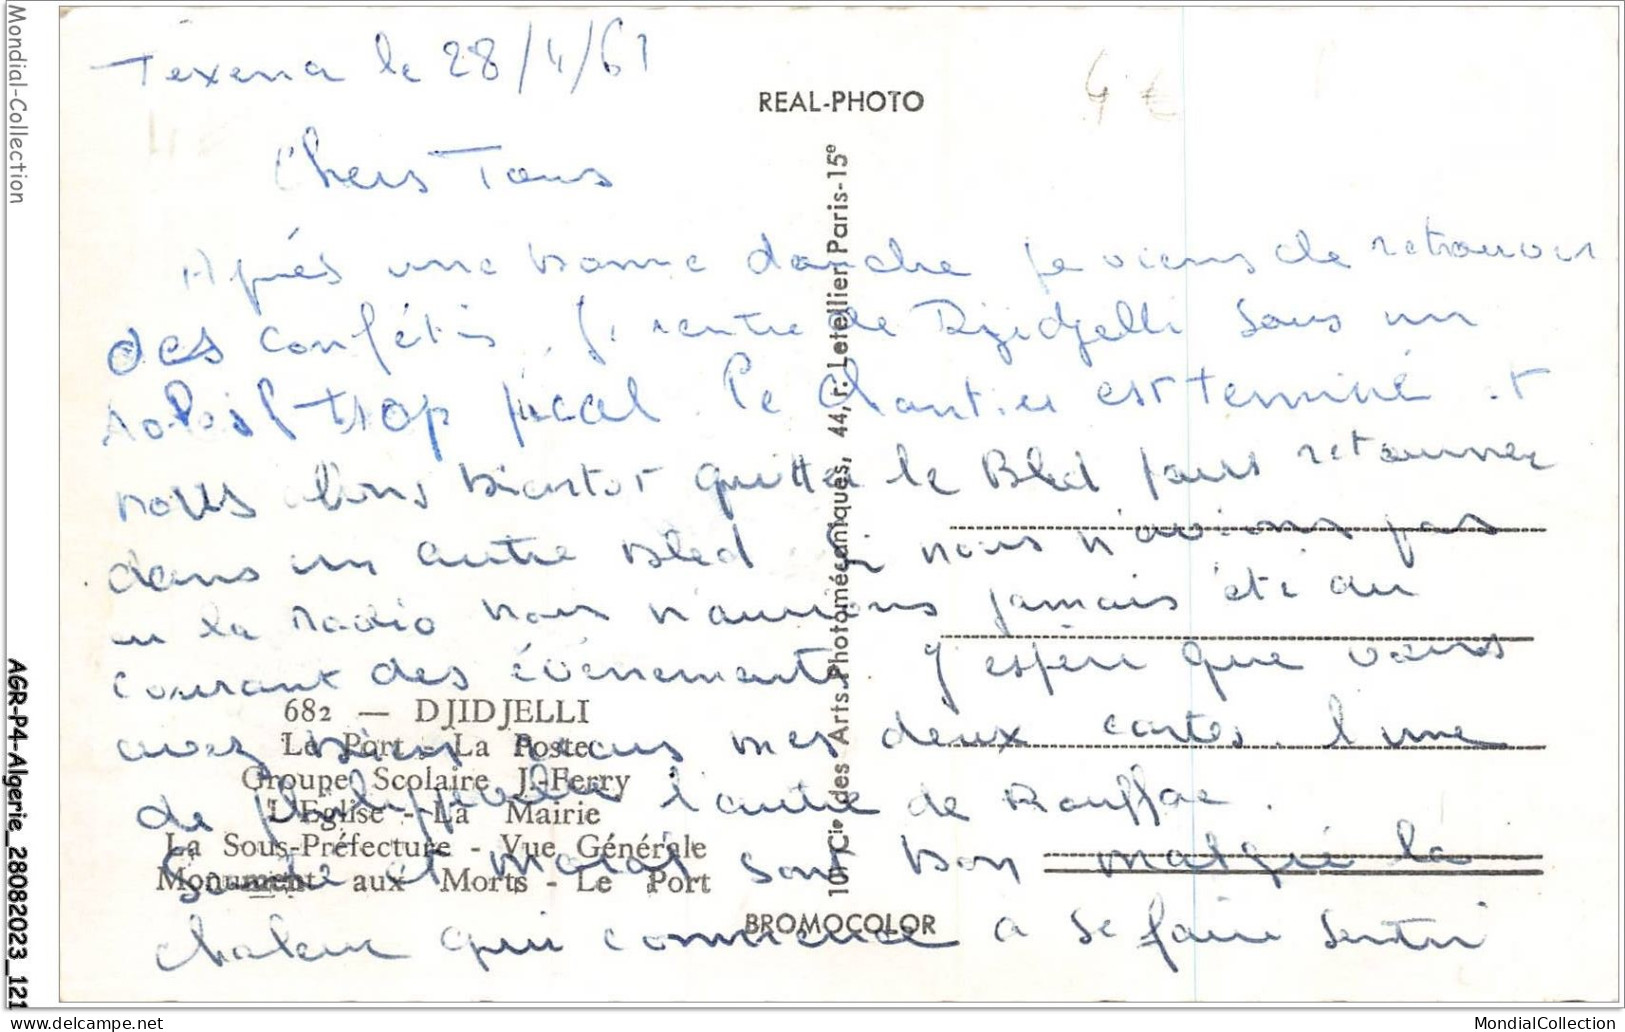 Mondial-Collection
AGR-P4-Algerie_28082023_121
Texena le 28/4/61
REAL-PHOTO
4 €
Chers Tous
Après une bonne douche je viens de retrouver
des confétis. Je rentre de Djidjelli sous un
soleil trop pical. Le Chantier est terminé et
nous allons biantot quitter le Bled pour retourner
dans un autre bled. Si nous n'avions pas
eu la radio nous n'aurions jamais été au
courant des évènements. J'espère que vous
avez bien reçus mes deux cartes. l'une
de Philippeville l'autre de Rouffac.
Santé et moral sont bon malgré la
chaleur qui commence a se faire sentir
682 — DJIDJELLI
Le Port - La Poste
Groupe Scolaire J.-Ferry
L'Eglise - La Mairie
La Sous-Préfecture - Vue Générale
Monument aux Morts - Le Port
Cie des Arts Photomécaniques, 44, r. Letellier, Paris-15e
BROMOCOLOR
https://www.delcampe.net
MondialCollection